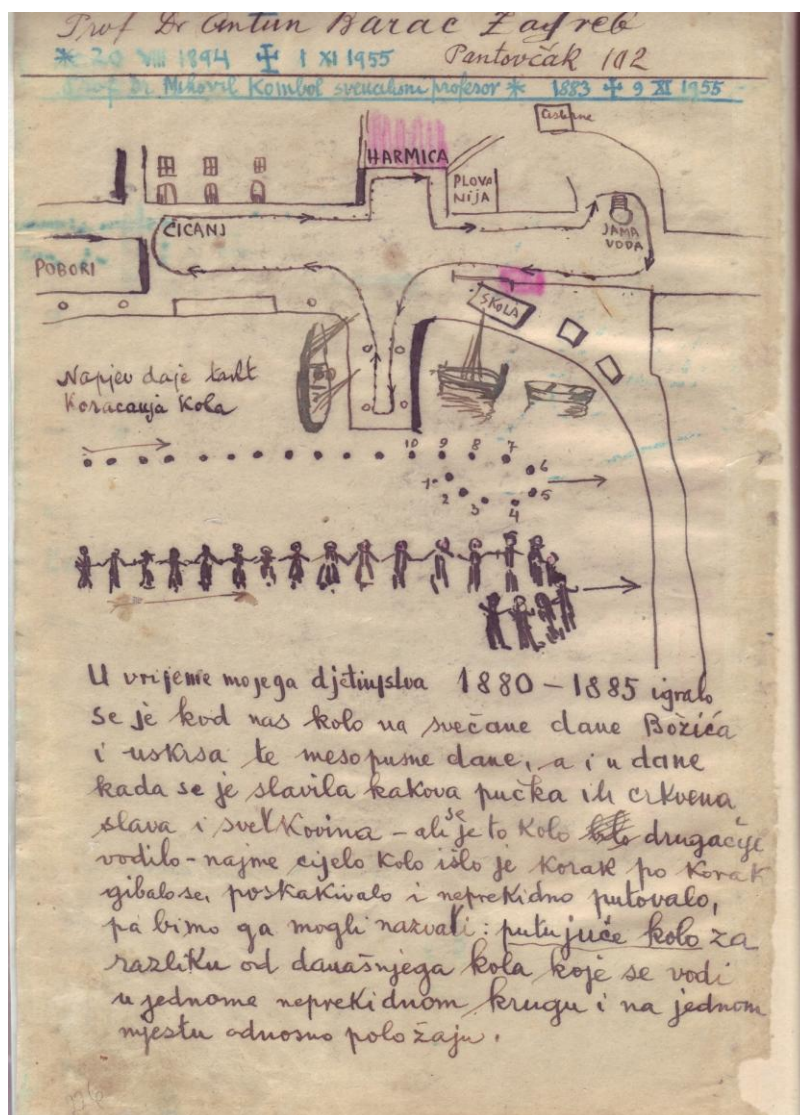 Prof Dr Antun Barac Zagreb
* 20 VIII 1894 ✝ 1 XI 1955 Pantovčak 102
Prof. Dr. Mihovil Kombol sveučilišni profesor * 1883 ✝ 9 XI 1955
Cisterne
HARMICA
PLOVA
NIJA
ČICANJ
JAMA
VODA
POBORI
ŠKOLA
Napjev daje takt
Koracanja Kola
10 9 8 7
6
1 5
2 3 4
U vrijeme mojega djetinjstva 1880 – 1885 igralo
se je kod nas kolo na svečane dane Božića
i uskrsa te mesopusne dane, a i u dane
kada se je slavila kakova pučka ili crkvena
slava i svetkovina – ali se je to kolo drugačije
vodilo – najme cijelo kolo išlo je korak po korak
gibalo se, poskakivalo i neprekidno putovalo,
pa bimo ga mogli nazvati: putujuće kolo za
razliku od današnjega kola koje se vodi
u jednome neprekidnom krugu i na jednom
mjestu odnosno položaju.